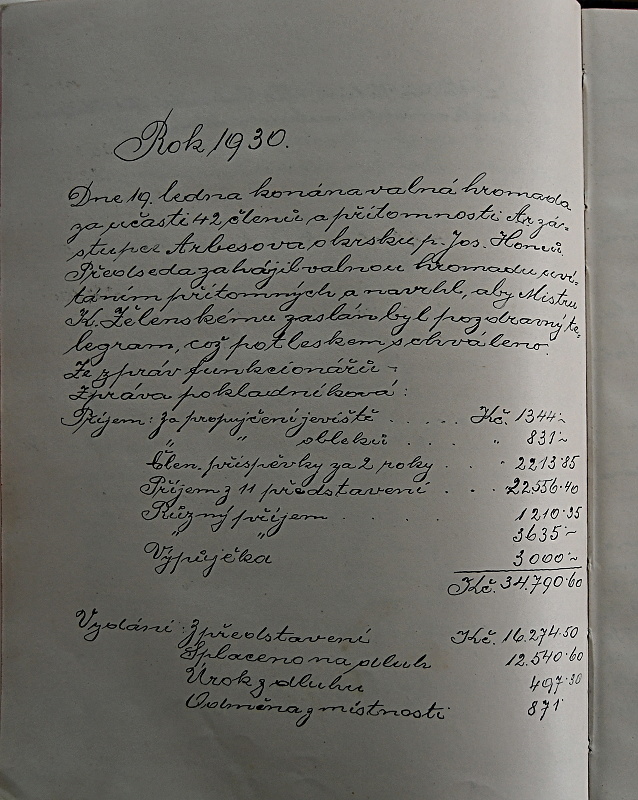 Rok 1930.
Dne 19. ledna konána valná hromada
za učasti 42 členů, a přítomnosti Ar zá-
stupce Arbesova okrsku p. Jos. Honců.
Předseda zahájil valnou hromadu uví-
táním přítomných a navrhl, aby Mistru
K. Želenskému zaslán byl pozdravný te-
legram, což potleskem schváleno.
Ze zpráv funkcionářů -
Zpráva pokladníková:
Příjem: Za propujčení jeviště ..... Kč. 1344~
„ „ obleků .... „ 831~
Člen. příspěvky za 2 roky .. „ 2213·85
Příjem z 11 představení ... 22556·40
Různý příjem . . . 1210·35
„ „ 3635~
Výpůjčka 3000~
Kč. 34.790·60
Vydání: Z představení Kč. 16.274·50
Splaceno na dluh 12.540·60
Úrok z dluhu 497·30
Odměna z místnosti 871·